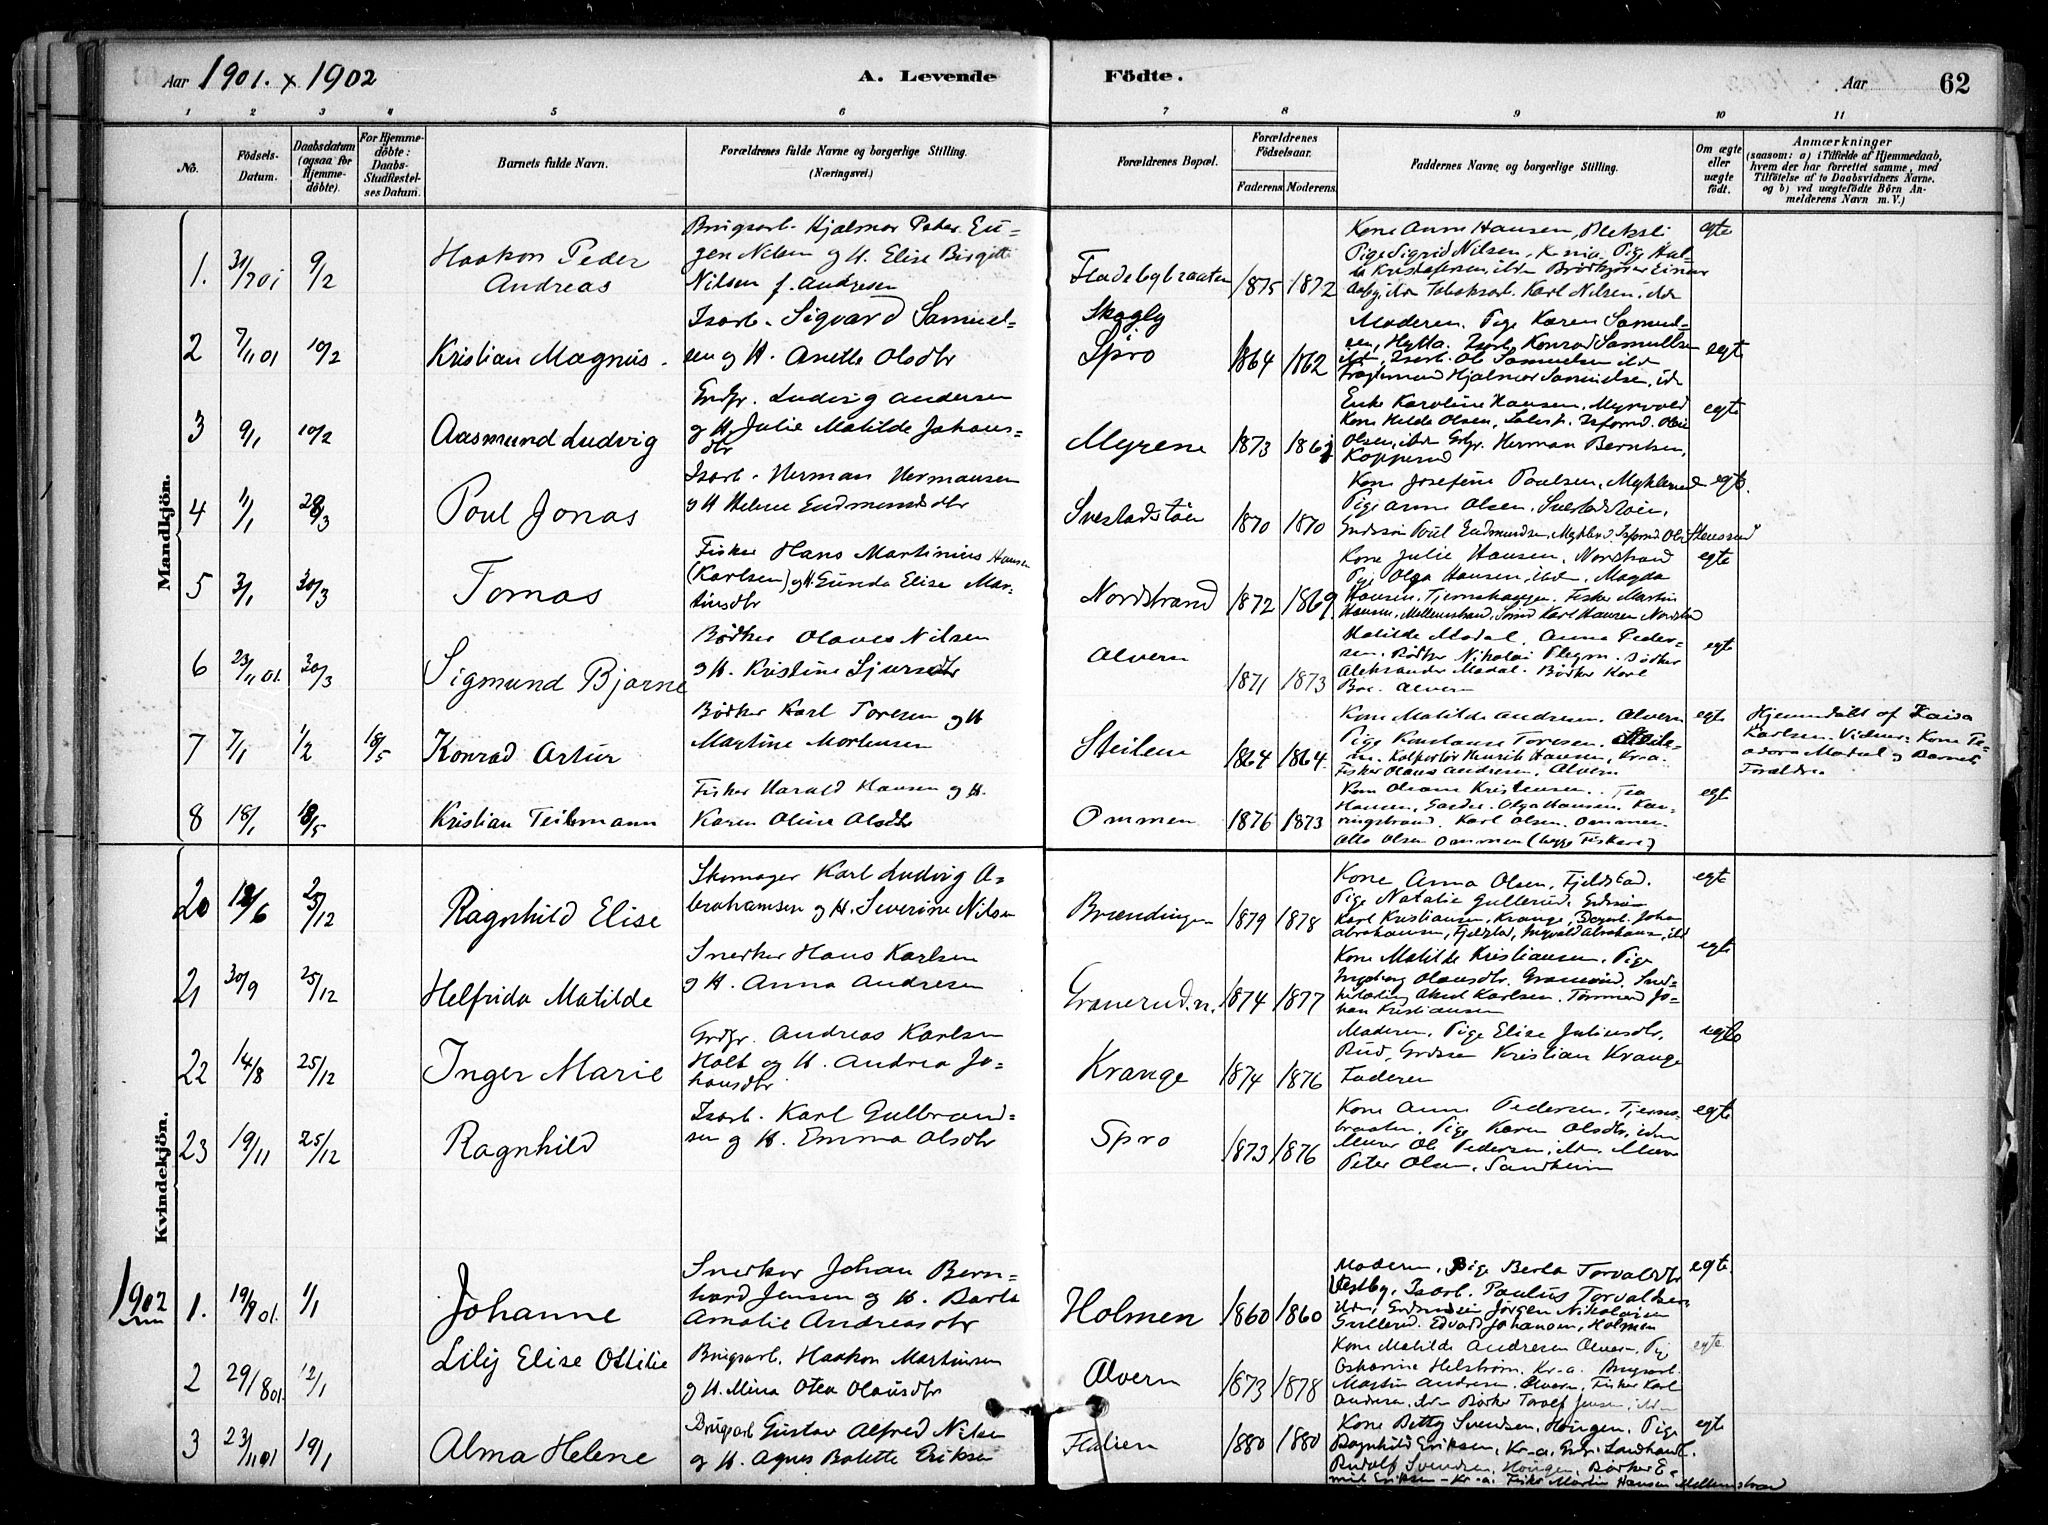 Aar 1901. x 1902 A. Levende Födte. Aar 62
1 2 3 4 5 6 7 8 9 10 11
No. Födsels-Datum. Daabsdatum (ogsaa for Hjemmedöbte). For Hjemmedöbte: Daabs-Stadfæstelses Datum. Barnets fulde Navn. Forældrenes fulde Navne og borgerlige Stilling. (Næringsvei.) Forældrenes Bopæl. Forældrenes Födselsaar. Faderens. Moderens. Faddernes Navne og borgerlige Stilling. Om ægte eller uægte födt. Anmærkninger (saasom: a) i Tilfælde af Hjemmedaab, hvem der har forrettet samme, med Tilföielse af to Daabsvidners Navne, og b) ved uægtefödte Börn Anmelderens Navn m. V.)
Mandkjön.
1. 31/7 01 9/2 Haakon Peder Andreas
Brugsarb. Hjalmar Peder Eu-
gen Nilsen og H. Elise Birgitte
Nilsen f. Andresen
Fladebybraaten 1875 1872
Kone Anne Hansen,
Pige Sigrid Nilsen, Pige
Karl Nilsen, ibdn
egte
2 7/11 01 10/2 Kristian Magnus.
Isarb. Sigvard Samuel-
sen og H. Anette Olsdtr
Skogly
Spro 1864 1862
Moderen. Pige Karen Samuel-
sen, Hytta. Isarb. Konrad Samuelsen
ibdn, Isarb. Ole Samuelsen ibdn
Hjalmar Samuelsen, ibdn
egte
3 9/1 10/2 Aasmund Ludvig
Grdbr. Ludvig Andersen
og H. Julie Matilde Johans-
dtr
Myrene 1873 1861
Enke Karoline Hansen, Myrvold
Kone Hilda Olsen,
Olsen, ibdn Grbr. Herman Berntsen,
Kopperud
egte
4 1/1 28/3 Poul Jonas
Isarb. Herman Hermansen
og H Helene Gudmundsdtr
Svestadstöen 1870 1870
Kone Josefine Paulsen, Myklerud
Pige Anne Olsen, Svestadstöen,
Grdssön Poul Gudmundsen,
egte.
5 3/1 30/3 Tomas
Fisker Hans Martinius Hansen
(Karlsen) og H. Gunda Elise Mar-
tinsdtr
Nordstrand 1872 1869.
Kone Julie Hansen, Nordstrand
Pig Olga Hansen, ibdn, Magda
Hansen, Tjernshaugen. Fisker Martin
Hansen, Mellemstrand, Karl Hansen Nordstrand
egte
6 23/11 01. 30/3 Sigmund Bjarne
Bödker Olaves Nilsen
og H. Kristine Sjursdtr
Alvern 1871 1873
Matilde Modal, Anna Peder-
sen. Bödker Nikolai Bödker
Aleksander Modal. Bödker Karl
Alvern
egte
7 7/1 1/2 18/5 Konrad Artur
Bödker Karl Toresen og H
Martine Mortensen
Steilene 1864 1864.
Kone Matilde Andresen. Alvern
Pige Konstanse Toresen. Steile-
ne. Kolportör Henrik Hansen, Kr-a.
Fisker Olaus Andresen, Alvern
egte
Hjemmdöbt af
Karlsen. Vidner: Kone Te-
adora Modal og Barnets
Forældre.
8 18/1 18/5 Kristian Teilmann
Fisker Harald Hansen og H.
Karen Oline Olsdtr
Ommen 1876 1873
Kone Oleane Kristensen. Tea
Hansen, Olga Hansen, Kav-
ringstrand. Karl Olsen. Ommen.
Otto Olsen Ommen (begge Fiskere)
egte
Kvindekjön.
20 12/6 25/12 Ragnhild Elise
Skomager Karl Ludvig A-
brahamsen og H. Severine Nilsen
Brændingen 1879 1878
Kone Anna Olsen, Fjeldstad.
Pige Natalie Gullerud. Grdssön
Karl Kristiansen, Krange, Dagarb. Johan
Abrahamsen, Fjeldstad, Ingvald Abrahamsen, ibd
egte
21 30/9 25/12 Helfrida Matilde
Snekker Hans Karlsen
og H. Anna Andresen
Granerud.n. 1874 1877
Kone Matilde Kristiansen, Pige
Ingeborg Olausdtr. Granerud, Snek-
Karlsen. Tömmermd Jo-
han Kristiansen
egte
22 14/8 25/12 Inger Marie
Grdbr. Andreas Karlsen
Holt og H. Andrea Jo-
hansdtr
Krange 1874 1876
Moderen, Pige Elise Juliusdtr.
Rud, Grdssön Kristian Krange
Faderen
egte
23 19/11 25/12 Ragnhild
Isarb. Karl Gulbrand-
sen og H. Emma Olsdtr
Spro 1873 1876
Kone Anne Pedersen. Tjerns-
braaten, Pige Karen Olsdtr, ibdn
Murer Ole Pedersen, ibdn. Murer
Peter Olsen, Sandheim
egte
1902
1. 19/9 01. 1/1 Johanne
Snekker Johan Bern-
hard Jensen og H. Berta
Amalie Andreasdtr
Holmen 1860 1860
Moderen, Pige Berta Torvaldsdtr
Vestby, Isarb. Paulius Torvaldsen
ibdn, Jörgen Nikolaisen
Gullerud. Edvard Johansen, Holmen
egte.
2 29/8 01. 12/1 Lilly Elise Ottilie
Brugsarb. Haakon Martinsen
og H. Mina Otea Olausdtr
Alvern 1873 1878
Kone Matilde Andresen Alvern, Pig
Helström, Kr-a. Brugsarb.
Martin Andresen. Alvern, Fisker Karl
Andresen, ibdn Bödker Torolf Jensen, ibdn
egte.
3 23/11 01 19/1 Alma Helene
Brugsarb Gustav Alfred Nilsen
og H. Agnes Bolette Eriksen
Flatien 1880 1880
Kone Betty Svendsen, Hougen, Pige
Ragnhild Eriksen, Kr-a. Landhandl.
Rudolf Svendsen, Hougen, Bödker E-
mil Eriksen - Kr-a. Fisker Martin Hansen Mellemstrand
egte